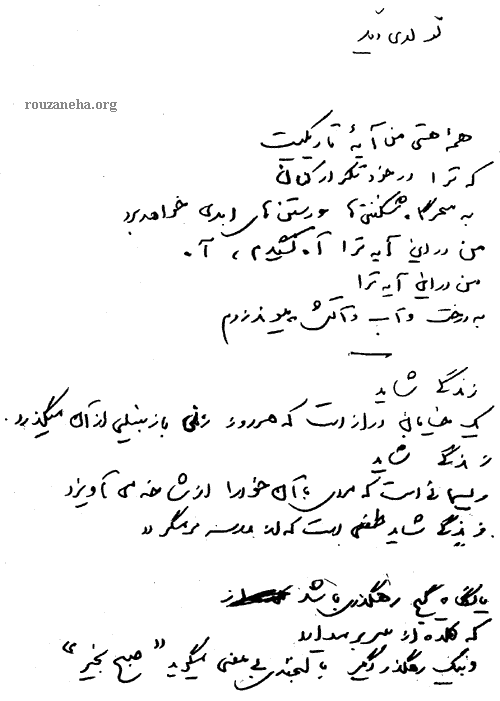 تولدی دیگر
rouzaneha.org
همهٔ هستی من آیهٔ تاریکیست
که ترا در خود تکرار کنان
به سحرگاه شکفتن‌ها و رستن‌های ابدی خواهد برد
من در این آیه ترا آه کشیدم ، آه
من در این آیه ترا
به درخت و آب و آتش پیوند زدم
زندگی شاید
یک خیابان درازست که هر روز زنی با زنبیلی از آن میگذرد.
زندگی شاید
ریسمانی است که مردی با آن خود را از شاخه می آویزد
زندگی شاید طفلی است که از مدرسه برمیگردد
یا نگاه گیج رهگذری باشد
که کلاه از سر بر میدارد
و بیک رهگذر دیگر با لبخندی بی معنی میگوید "صبح بخیر"